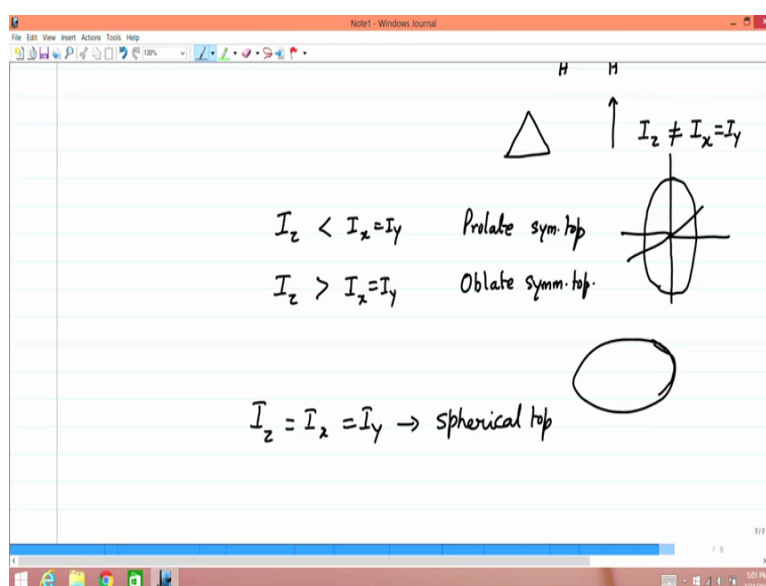 Note1 - Windows Journal
File Edit View Insert Actions Tools Help
130%
H H
I_z ≠ I_x=I_y
I_z < I_x=I_y Prolate sym. top
I_z > I_x=I_y Oblate symm. top.
I_z = I_x = I_y → spherical top
7 8
5:01 PM